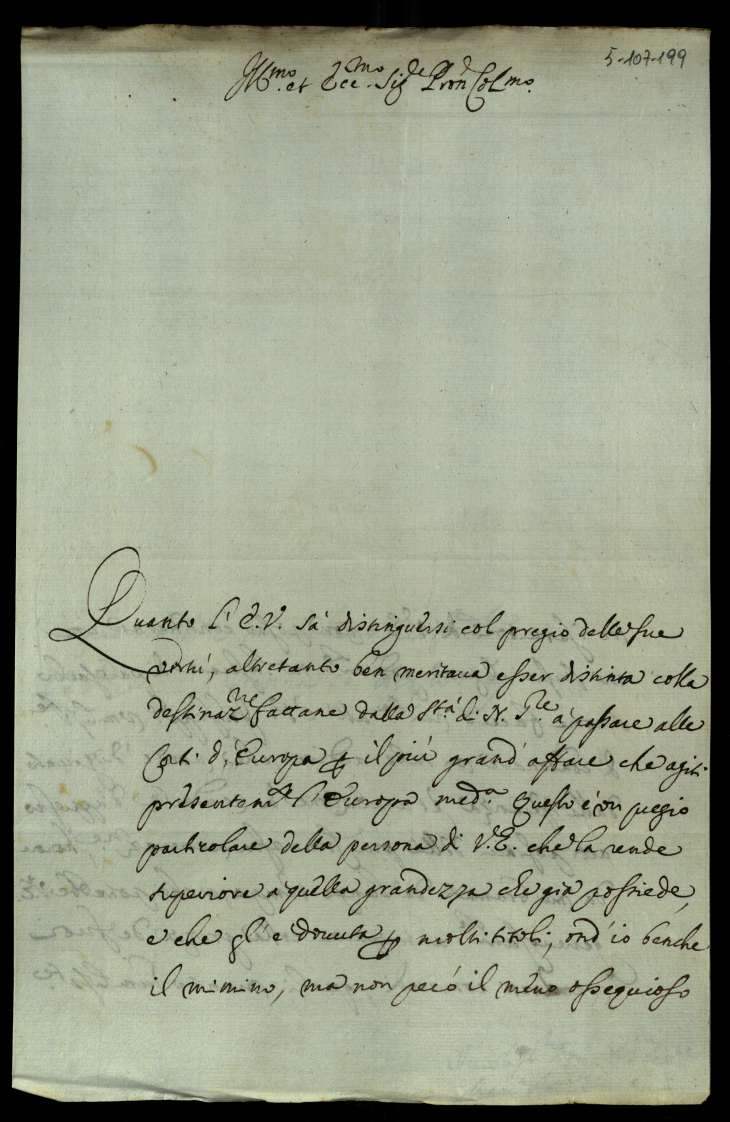 5-107-199
Ill.mo et Ecc.mo Sig.re Pron Col.mo
Quanto l'E.V. sà distinguersi col pregio delle sue
virtù, altretanto ben meritaua esser distinta colla
destinaz.ne fattane dalla St.à di N. S.re à passare alle
Corti d'Europa p il più grand'affare che agiti
presentem.te l'Europa med.a Questo è un pregio
particolare della persona di V.E. che la rende
superiore à quella grandezza che già possiede,
e che gl'è douuta p molti titoli; ond'io benche
il minimo, ma non peró il meno ossequioso